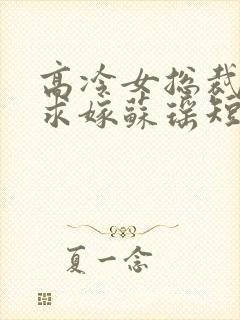 高冷女总裁
求嫁蘇瑶短
夏一念